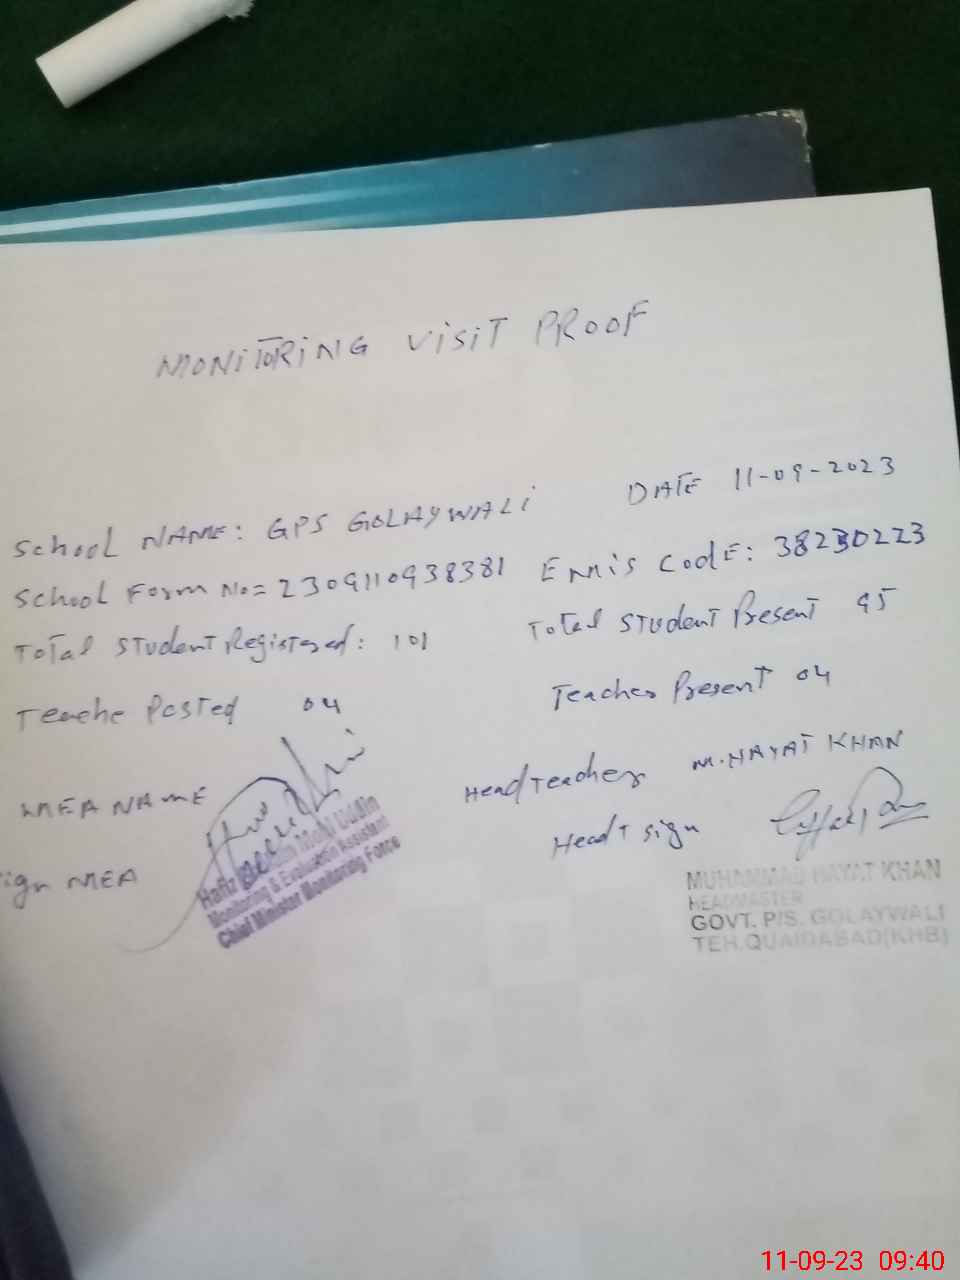 MONITORING VISIT PROOF
School NAME: GPS GOLAYWALI DATE 11-09-2023
School Form No= 2309110938381 Emis CodE: 38230223
Total Student Registered: 101 Total Student Present 95
Teache Posted 04 Teacher Present 04
MEA NAME Head Teacher M. HAYAT KHAN
ign MEA Head T sign
Hafiz Mohi Uddin
Monitoring & Evaluation Assistant
Chief Minister Monitoring Force
MUHAMMAD HAYAT KHAN
HEADMASTER
GOVT. P/S. GOLAYWALI
TEH.QUAIDABAD(KHB)
11-09-23 09:40